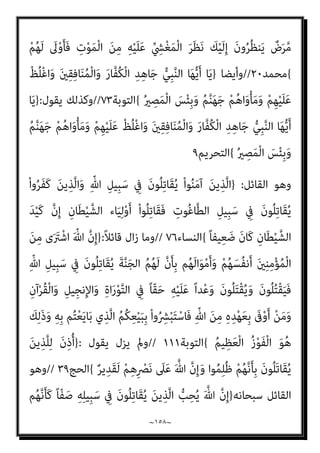 مَّرَضٌ يَنظُرُونَ إِلَيْكَ نَظَرَ الْمَغْشِيِّ عَلَيْهِ مِنَ الْمَوْتِ فَأَوْلَى لَهُمْ
{محمد٢٠//وأيضا {يَا أَيُّهَا النَّبِيُّ جَاهِدِ الْكُفَّارَ وَالْمُنَافِقِينَ وَاغْلُظْ
عَلَيْهِمْ وَمَأْوَاهُمْ جَهَنَّمُ وَبِئْسَ الْمَصِيرُ {التوبة٧٣//وكذلك يقول:{يَا
أَيُّهَا النَّبِيُّ جَاهِدِ الْكُفَّارَ وَالْمُنَافِقِينَ وَاغْلُظْ عَلَيْهِمْ وَمَأْوَاهُمْ جَهَنَّمُ
وَبِئْسَ الْمَصِيرُ {التحريم٩
وهو القائل: {الَّذِينَ آمَنُواْ يُقَاتِلُونَ فِي سَبِيلِ اللّهِ وَالَّذِينَ كَفَرُواْ
يُقَاتِلُونَ فِي سَبِيلِ الطَّاغُوتِ فَقَاتِلُواْ أَوْلِيَاء الشَّيْطَانِ إِنَّ كَيْدَ
الشَّيْطَانِ كَانَ ضَعِيفاً {النساء٧٦ //وما زال قائلاً:{إِنَّ اللّهَ اشْتَرَى مِنَ
الْمُؤْمِنِينَ أَنفُسَهُمْ وَأَمْوَالَهُم بِأَنَّ لَهُمُ الجَنَّةَ يُقَاتِلُونَ فِي سَبِيلِ اللّهِ
فَيَقْتُلُونَ وَيُقْتَلُونَ وَعْداً عَلَيْهِ حَقّاً فِي التَّوْرَاةِ وَالإِنجِيلِ وَالْقُرْآنِ
وَمَنْ أَوْفَى بِعَهْدِهِ مِنَ اللّهِ فَاسْتَبْشِرُواْ بِبَيْعِكُمُ الَّذِي بَايَعْتُم بِهِ وَذَلِكَ
هُوَ الْفَوْزُ الْعَظِيمُ {التوبة١١١ //ولم يزل يقول :{أُذِنَ لِلَّذِينَ
يُقَاتَلُونَ بِأَنَّهُمْ ظُلِمُوا وَإِنَّ اللَّهَ عَلَى نَصْرِهِمْ لَقَدِيرٌ {الحج٣٩ //وهو
القائل سبحانه{إِنَّ اللَّهَ يُحِبُّ الَّذِينَ يُقَاتِلُونَ فِي سَبِيلِهِ صَفّاً كَأَنَّهُم
~١٥٨~